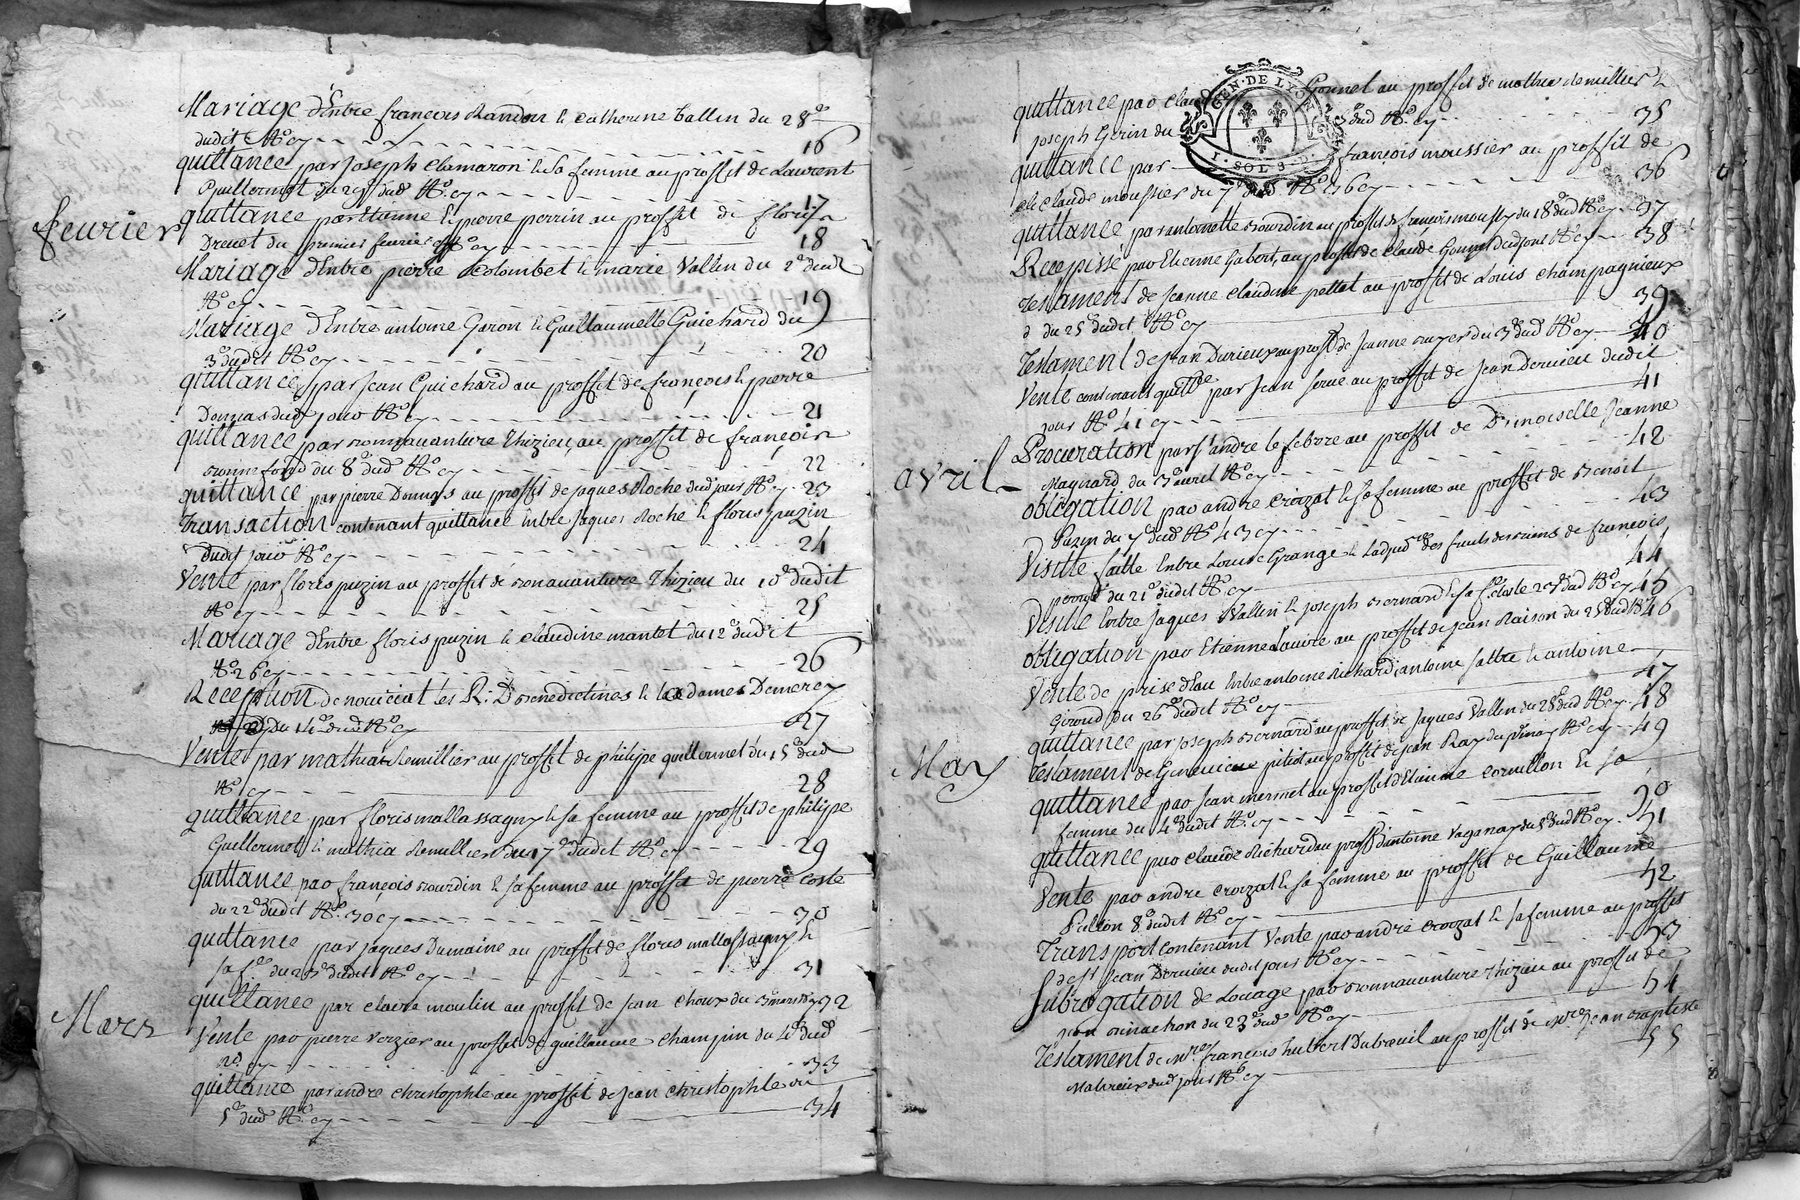 Mariage d'Entre françois Randon & catherine vallin du 28e
dudit No cy 16
quittance par Joseph Clamaron & sa femme au proffit de Laurent
Guillermet du 29e dud No cy 17
fevrier
quittance par Etienne & pierre perrin au proffit de floris
Drevet du premier fevrier No cy 18
Mariage d'Entre pierre Colombet & marie Vallin du 2e dud
No cy 19
Mariage d'Entre antoine Goron & Guillaumette Guichard du
3e dudit No cy 20
quittance par Jean Guichard au proffit de françois & pierre
Dumas dud jour No cy 21
quittance par bonnavanture Thizieu au proffit de françois
bonnefond du 8e dud No cy 22
quittance par pierre Dumas au proffit de jaques Roche dud jour No cy 23
Transaction contenant quittance entre Jaques Roche & floris puzin
dudit jour No cy 24
Vente par floris puzin au proffit de bonavanture Thizieu du 10e dudit
No cy 25
Mariage d'Entre floris puzin & claudine mantet du 12e dudit
No 26 cy 26
Reception de noviciat les R: D benedictines & la dames Demerey
du 14e dud No cy 27
Vente par mathias Remillier au proffit de philipe guillermet du 15e dud
No cy 28
quittance par floris mallassagny & sa femme au proffit de philipe
Guillermet & mathia Remillier du 17e dudit No cy 29
quittance par françois bourdin & sa femme au proffit de pierre Coste
du 22e dudit No 30 cy 30
quittance par Jaques Dumaine au proffit de floris mallassagny &
sa fe du 25e dudit No cy 31
Mars
quittance par claire moulin au proffit de Jean Choux du 3e mars No cy 32
Vente par pierre Verzier au proffit de guillaume champin du 4e dud
No cy 33
quittance par andre christophle au proffit de Jean christophle du
5e dud No cy 34
quittance par Claude Gonnet au proffit de mathieu Remillier &
Joseph Gerin du 5e dud No cy 35
GEN · DE LYON
1 · SOL 8 · D ·
quittance par françois moussier au proffit de
claude moussier du 7e dud No 36 cy 36
quittance par antoinette bourdin au proffit de françois moussy du 18e dud No cy 37
Recepisse par Etienne Gabert, au proffit de Claude Gonnet dud jour No cy 38
Testament de Jeanne Claudine pellet au proffit de Louis champagnieux
du 25e dudit No cy 39
Testament de Jean Durieux au proffit de Jeanne du dud No cy 40
Vente contenant quittce par Jean au proffit de Jean Dervieu dudit
jour No 41 cy 41
avril
Procuration par sr andre le febvre au proffit de Demoiselle Jeanne
Maynard du 3e avril No cy 42
obligation par andre Crozat & sa femme au proffit de benoit
puzin du 7e dud No 43 cy 43
Visitte faitte Entre Louise Grange & de françois
du 21e dudit No cy 44
Visitte Entre Jaques Vallin & Joseph bernard & sa fe dud No cy 45
obligation par Etienne Louvre au proffit de Jean Raison du 25e dud No 46
Vente de prise d'Eau entre antoine Richard, antoine & antoine
Giroud du 26e dudit No cy 47
quittance par Joseph bernard au proffit de Jaques Vallin du 28e dud No cy 48
May
Testament de Genevieve au proffit de Jean Ray du may No cy 49
quittance par Jean mermet au proffit d'Etienne Cornillon & sa
femme du 4e dudit No cy 50
quittance par Claude Richard au proffit d'antoine Vaganay du dud No cy 51
Vente par andre Crozat & sa femme au proffit de Guillaume
Pallon 8e dudit No cy 52
Transport contenant Vente par andre Crozat & sa femme au proffit
de sr Jean Dervieu dudit jour No cy 53
Subrogation de Louage par bonnavanture Thizieu au proffit de
Jean du 23e dud No cy 54
Testament de françois hubert Dubreuil au proffit de Jean baptiste
Malvieux dud jour No cy 55